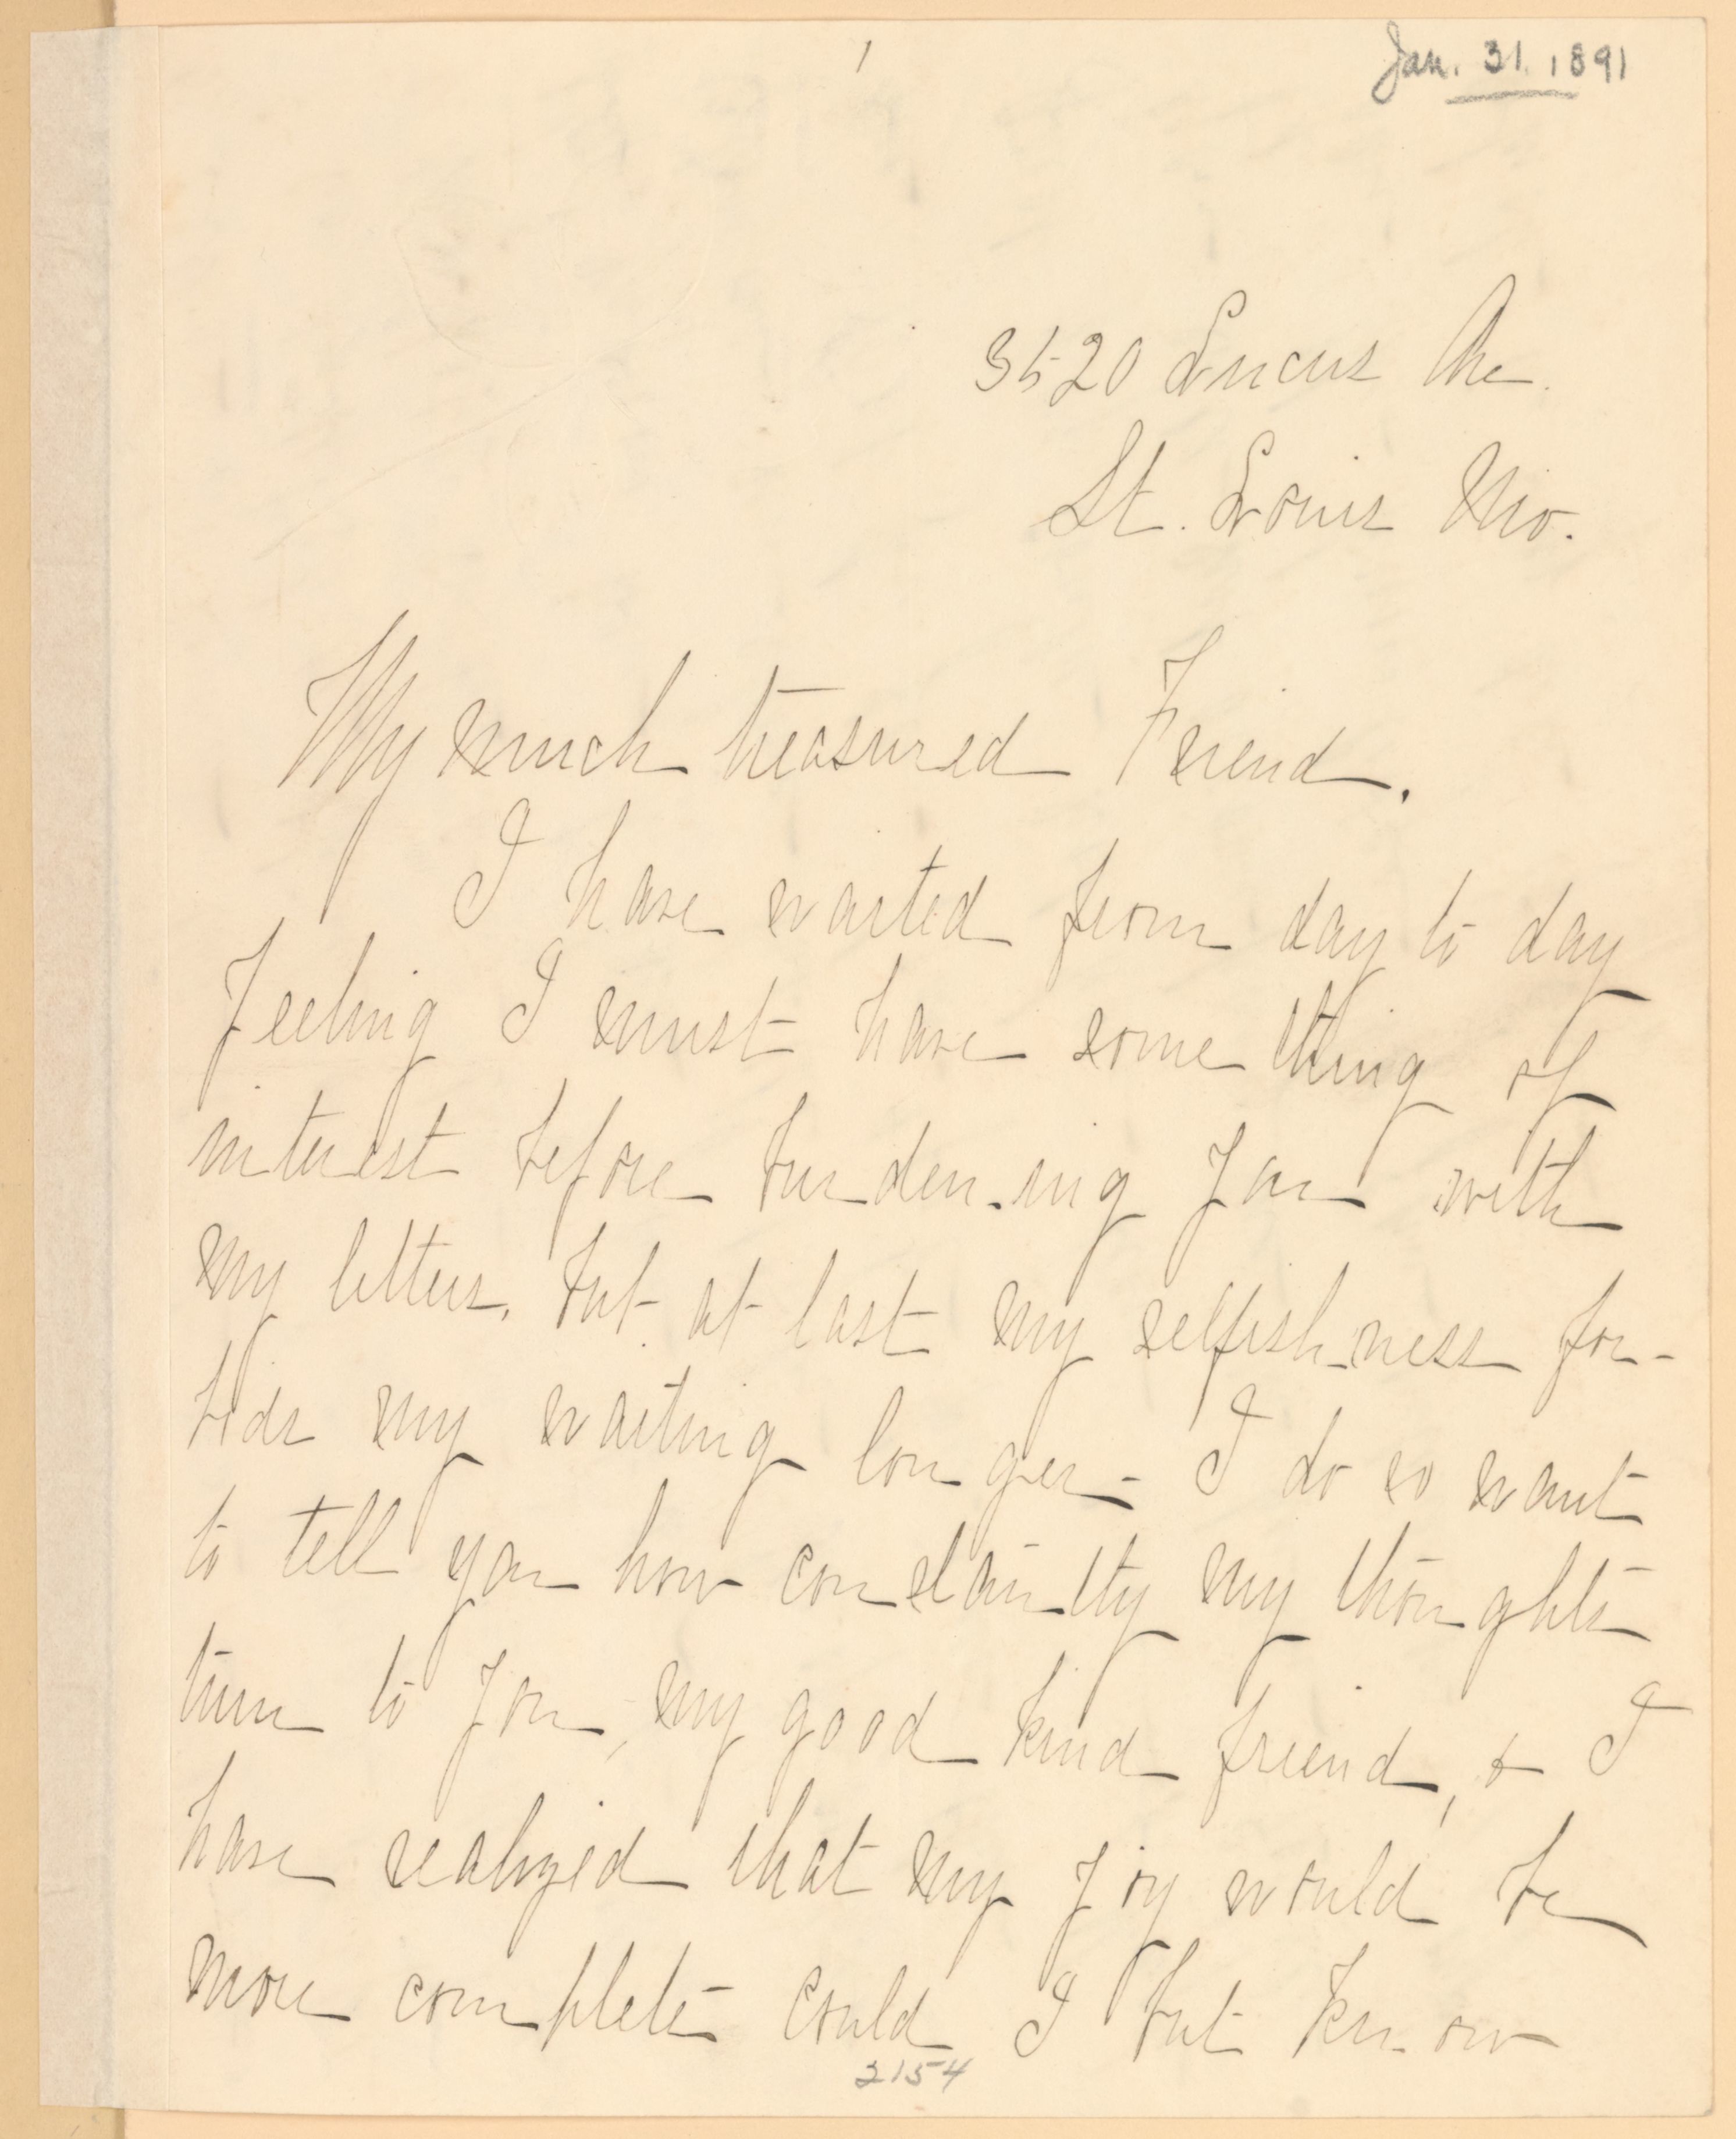 1
Jan. 31. 1891
3520 Lucas Ave.
St. Louis Mo.
My much treasured Friend.
I have waited from day to day
feeling I must have some thing of
interest before burdening you with
my letters. but at last my selfishness for-
bids my waiting longer - I do so want
to tell you how constantly my thoughts
turn to you, my good kind friend, & I
have realized that my joy would be
more complete could I but know
2154